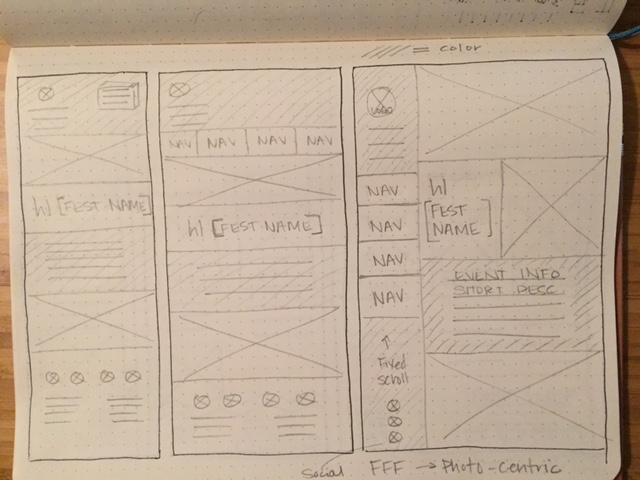 = color
h1 [FEST NAME]
NAV NAV NAV NAV
h1 [FEST NAME]
LOGO
NAV
NAV
NAV
NAV
↑
Fixed
scroll
h1
[FEST
NAME]
EVENT INFO
SHORT DESC
Social
FFF → Photo-centric